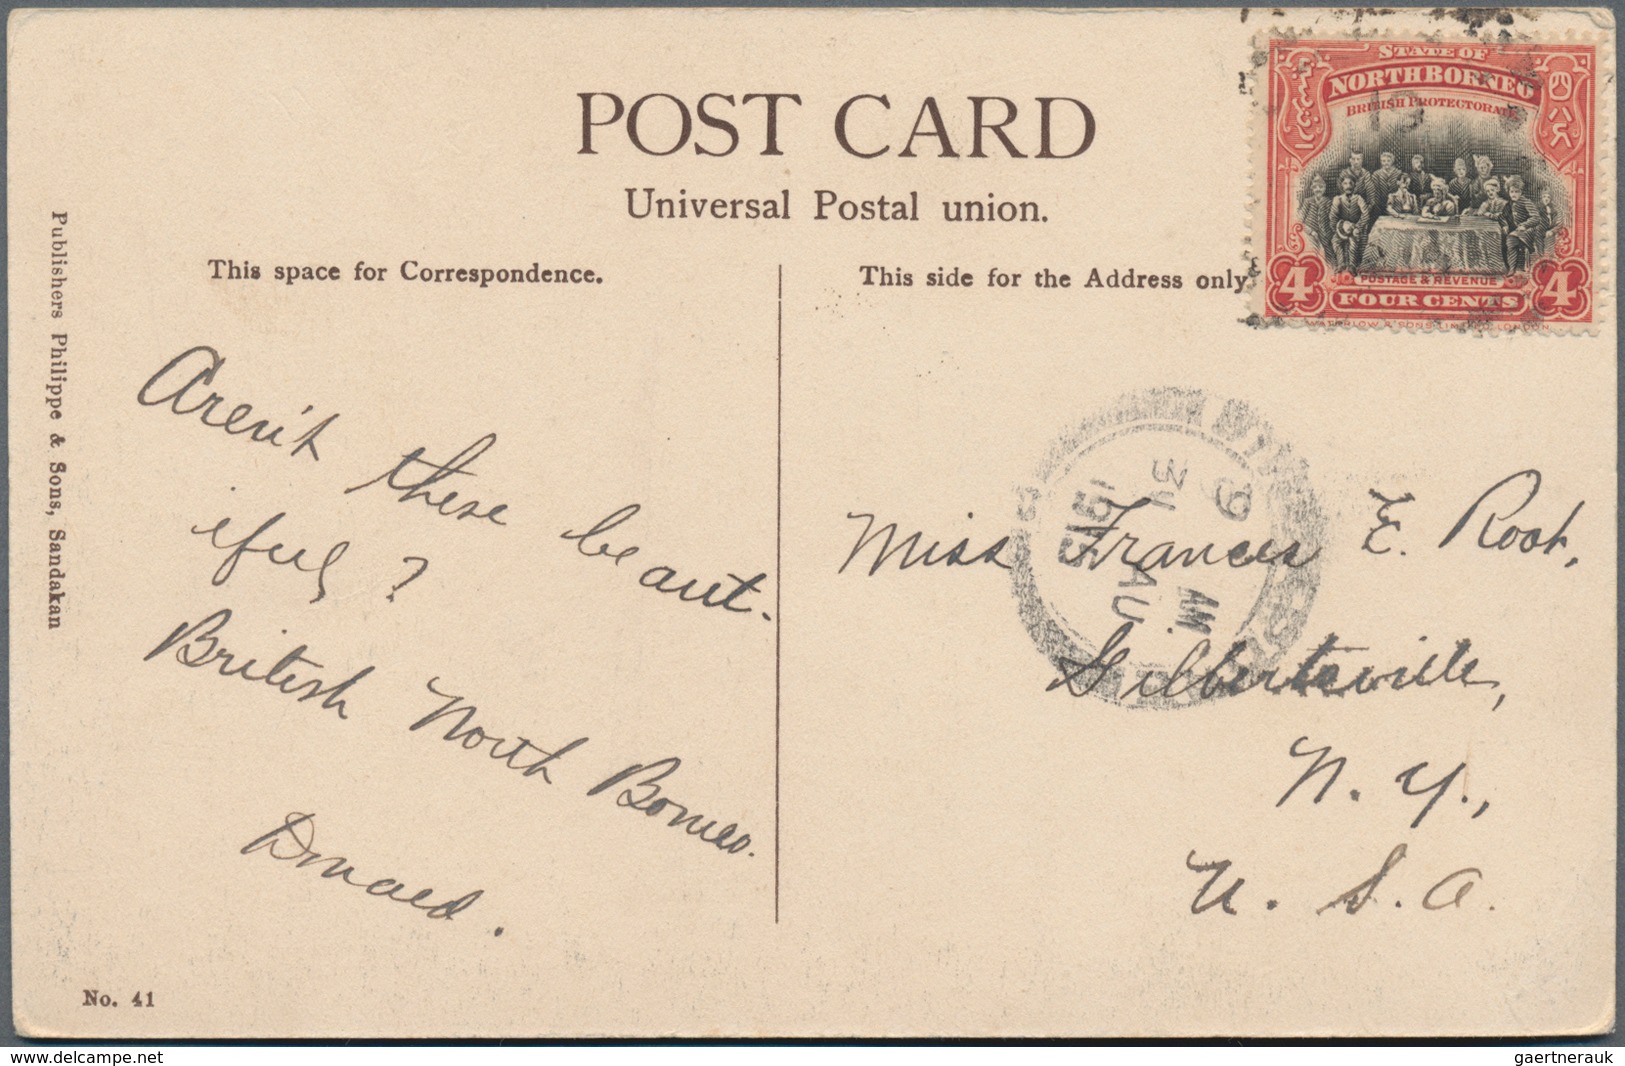 POST CARD
Universal Postal union.
This space for Correspondence.
This side for the Address only
Publishers Philippe & Sons, Sandakan
STATE OF
NORTH BORNEO
BRITISH PROTECTORATE
四
4
POSTAGE & REVENUE
4
FOUR CENTS
WATERLOW & SONS LIMITED, LONDON
Aren't these beaut-
iful?
British North Borneo.
Donald.
9 AM
31 AU
1915
Miss Frances E. Root,
Gilbertsville,
N. Y.,
U. S. A.
No. 41
delcampe.net
gaertnerauk